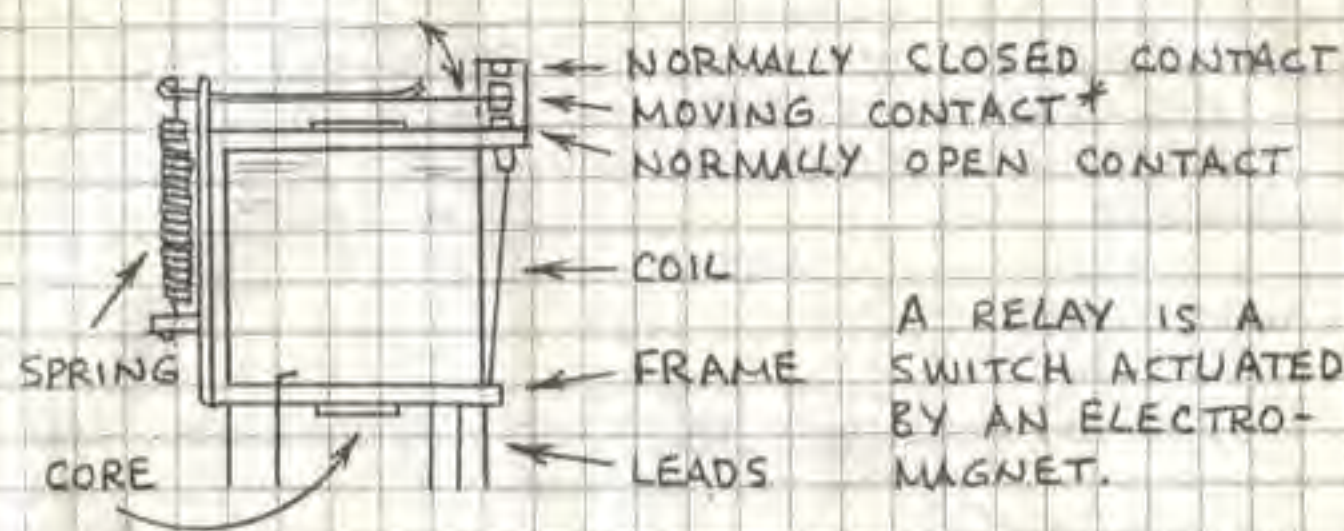 NORMALLY CLOSED CONTACT
MOVING CONTACT*
NORMALLY OPEN CONTACT
COIL
SPRING
FRAME
CORE
LEADS
A RELAY IS A
SWITCH ACTUATED
BY AN ELECTRO-
MAGNET.